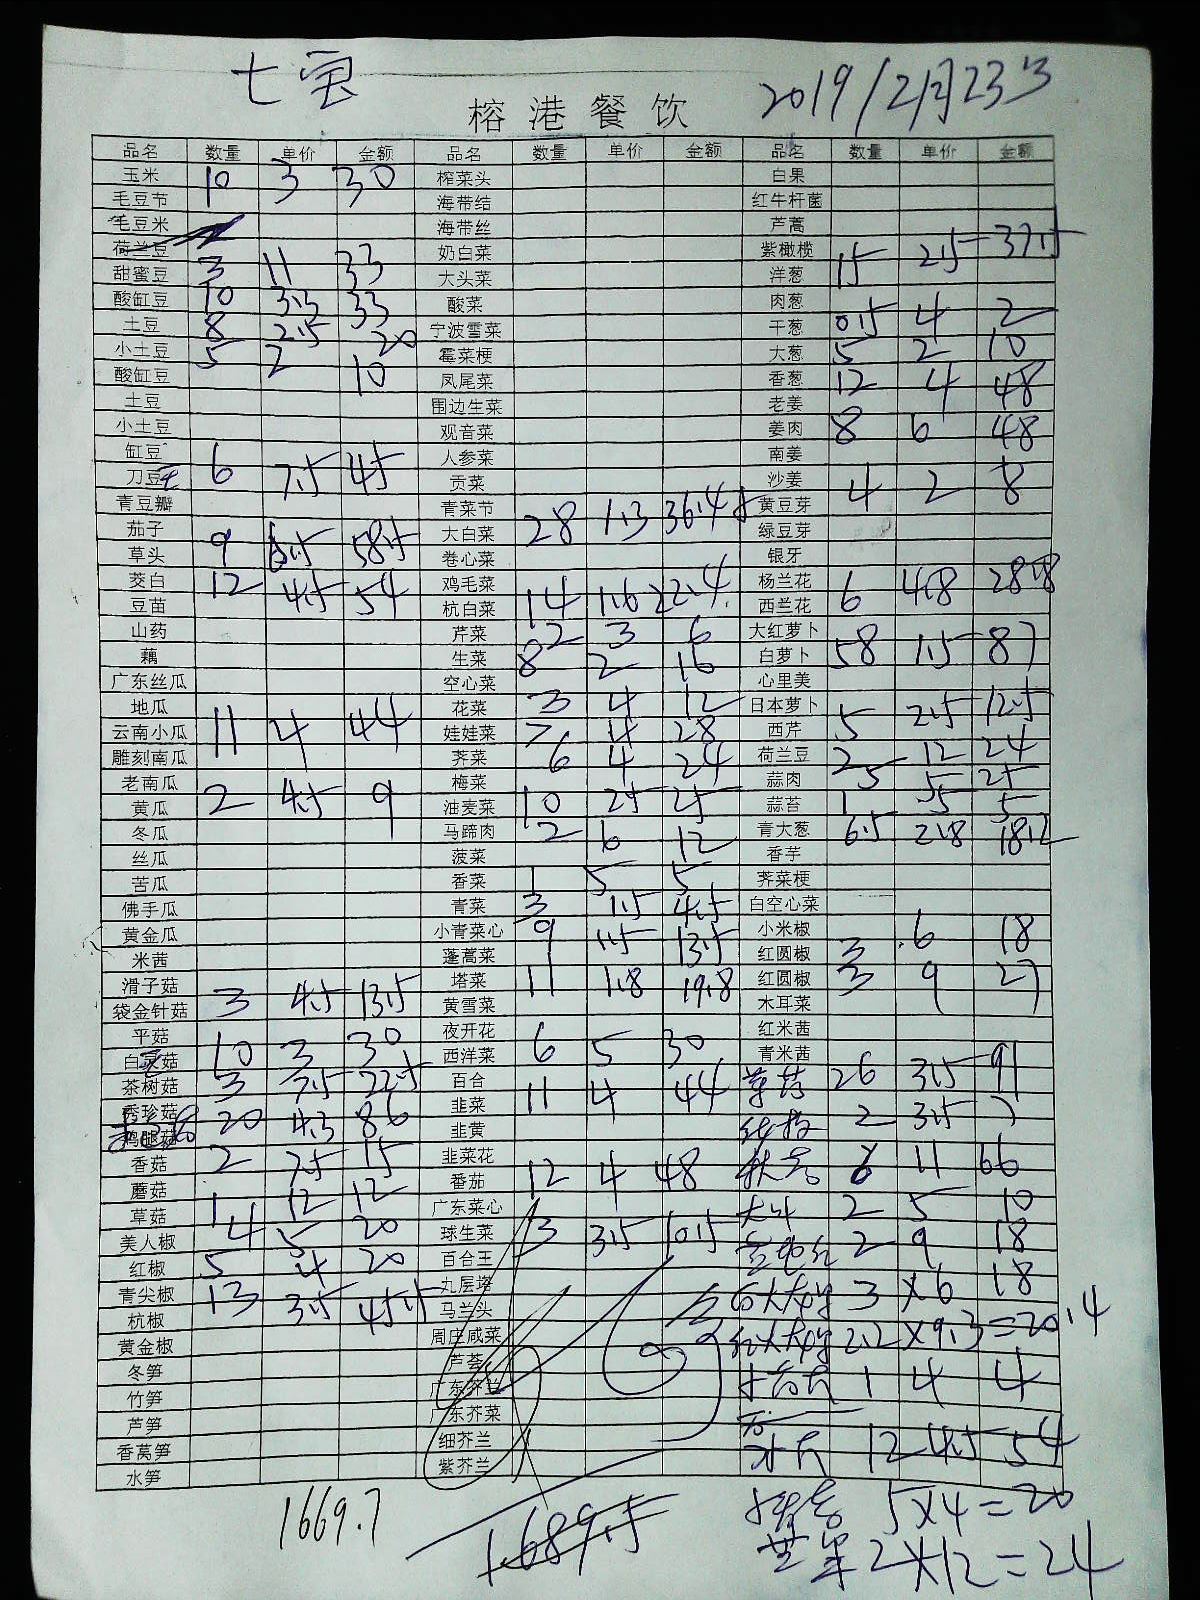 七宝
榕港餐饮
2019/2月23号
品名 数量 单价 金额 品名 数量 单价 金额 品名 数量 单价 金额
玉米 10 3 30 榨菜头 白果
毛豆节 海带结 红牛杆菌
毛豆米 海带丝 芦蒿
荷兰豆 奶白菜 紫橄榄
甜蜜豆 3 11 33 大头菜 洋葱 15 2.5 37.5
酸缸豆 10 3.3 33 酸菜 肉葱
土豆 8 2.5 20 宁波雪菜 干葱 0.5 4 2
小土豆 5 2 10 霉菜梗 大葱 5 2 10
酸缸豆 凤尾菜 香葱 12 4 48
土豆 围边生菜 老姜
小土豆 观音菜 姜肉 8 6 48
缸豆 6 7.5 45 人参菜 南姜
刀豆 贡菜 沙姜 4 2 8
青豆瓣 青菜节 黄豆芽
茄子 9 6.5 58.5 大白菜 28 1.3 36.4 绿豆芽
草头 卷心菜 银牙
茭白 12 4.5 54 鸡毛菜 杨兰花
豆苗 杭白菜 14 1.6 22.4 西兰花 6 4.8 28.8
山药 芹菜 2 3 6 大红萝卜
藕 生菜 8 2 16 白萝卜 58 1.5 87
广东丝瓜 空心菜 心里美
地瓜 花菜 3 4 12 日本萝卜
云南小瓜 11 4 44 娃娃菜 7 4 28 西芹 5 2.5 12.5
雕刻南瓜 荠菜 6 4 24 荷兰豆 2 12 24
老南瓜 梅菜 蒜肉 5 5 25
黄瓜 2 4.5 9 油麦菜 10 2.5 25 蒜苔 1 5 5
冬瓜 马蹄肉 2 6 12 青大葱 6.5 2.8 18.2
丝瓜 菠菜 香芋
苦瓜 香菜 1 5 5 荠菜梗
佛手瓜 青菜 3 1.5 4.5 白空心菜
黄金瓜 小青菜心 9 1.5 13.5 小米椒 3 6 18
米茜 蓬蒿菜 红圆椒
滑子菇 塔菜 11 1.8 19.8 红圆椒 3 9 27
袋金针菇 3 4.5 13.5 黄雪菜 木耳菜
平菇 夜开花 红米茜
白灵菇 10 3 30 西洋菜 6 5 30 青米茜
茶树菇 3 7.5 22.5 百合 26 3.5 91
秀珍菇 20 4.3 86 韭菜 11 4 44 2 3.5 7
鸡腿菇 韭黄
香菇 2 7.5 15 韭菜花 6 11 66
蘑菇 番茄 12 4 48
草菇 1 12 12 广东菜心 大叶 2 5 10
美人椒 4 5 20 球生菜 3 3.5 10.5 2 9 18
红椒 5 4 20 百合王
青尖椒 13 3.5 45.5 九层塔 3 ×6 18
杭椒 马兰头
黄金椒 周庄咸菜 2.2 ×9.3=20.4
冬笋 芦荟
竹笋 广东芥兰 1 4 4
芦笋 广东芥菜
香莴笋 细芥兰 12 4.5 54
水笋 紫芥兰
1669.7 1689.5 5×4=20
2×12=24